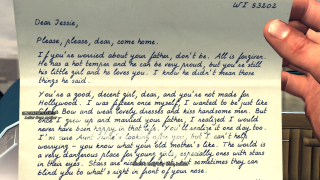 WI 53202
Dear Jessie,
Please, please, dear, come home.
If you're worried about your father, don't be. All is forgiven.
He has a hot temper and he can be very proud, but you're still
his little girl and he loves you. I know he didn't mean those
things he said.
You're a good, decent girl, dear, and you're not made for
Hollywood. I was fifteen once myself, I wanted to be just like
Clara Bow and wear lovely dresses and kiss handsome men. But
once I grew up and married your father, I realized I would
never have been happy in that life. You'll realize it one day too.
I'm sure Aunt looking after you, but I can't help
worrying - you know what your old mother's like. The world is
a very dangerous place for young girls, especially ones with stars
in their eyes. Stars are nice but sometimes they can
blind you to what's right in front of your nose.